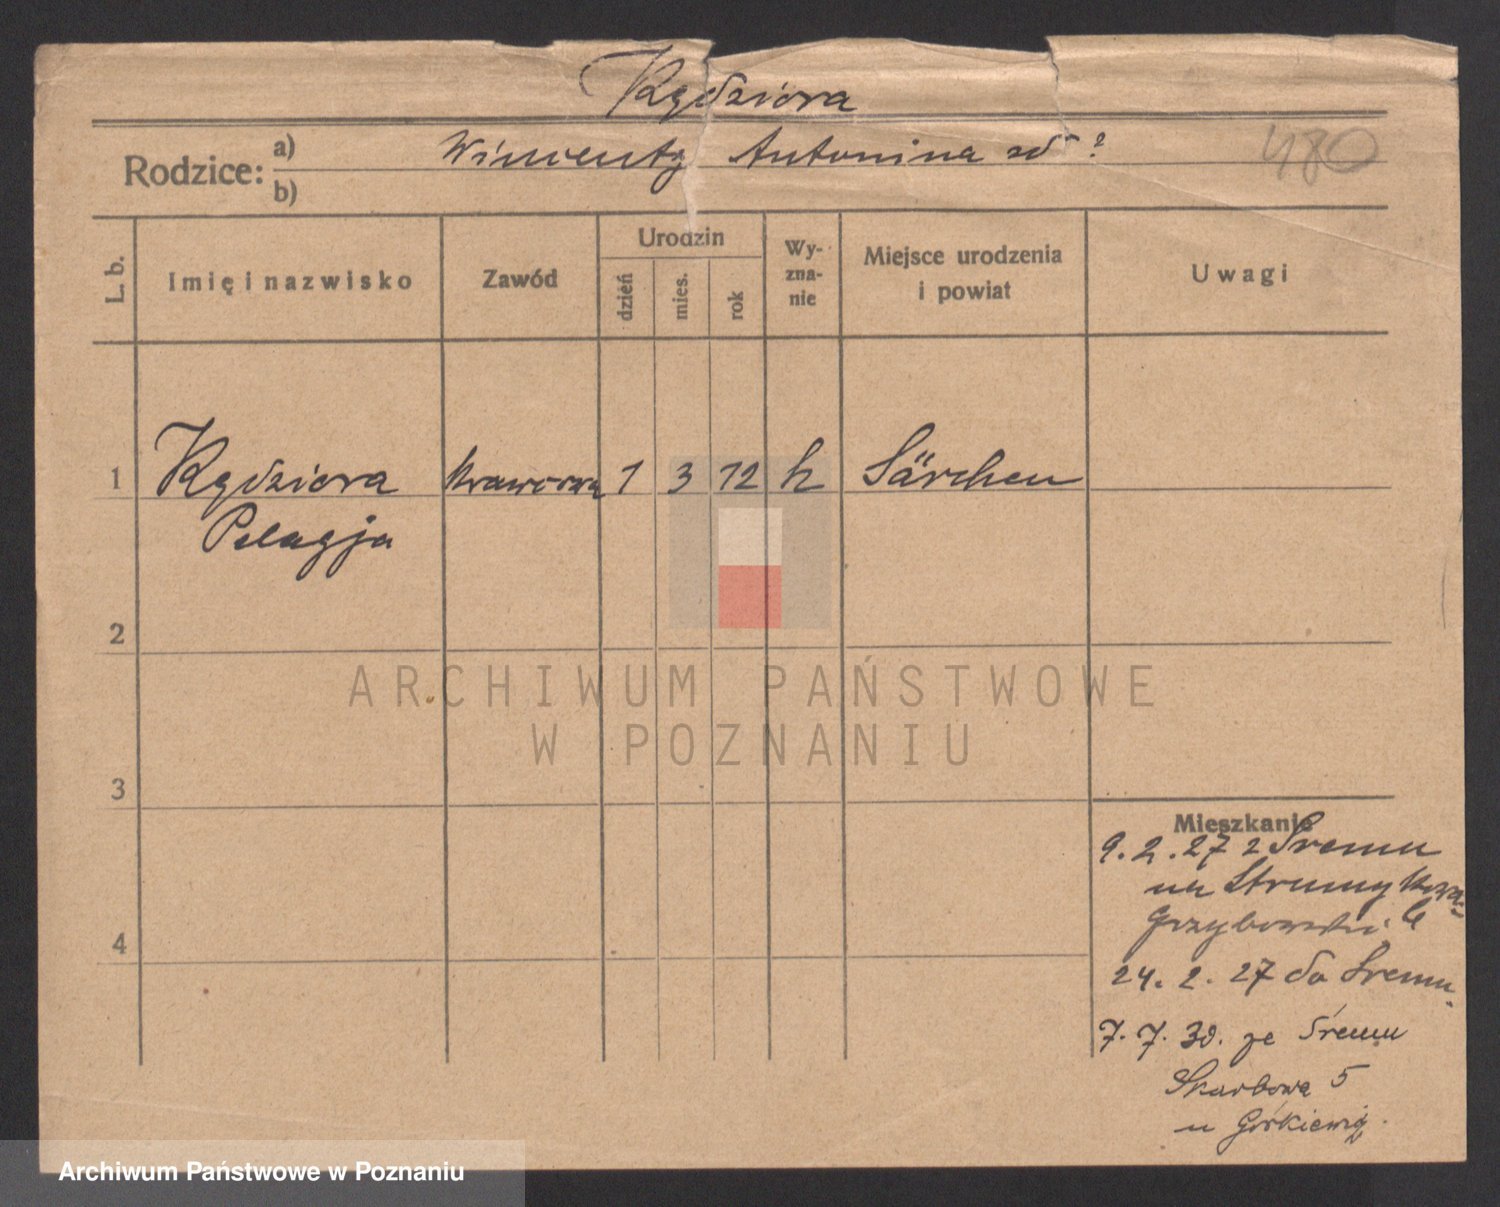 Kędziora
Rodzice: a) Wincenty Antonina zd ?
b)
480
L. b.
Imię i nazwisko
Zawód
Urodzin
dzień
mies.
rok
Wy-
zna-
nie
Miejsce urodzenia
i powiat
Uwagi
1 Kędziora krawcowa 1 3 12 k Särchen
Pelagja
2
3
4
Mieszkanie
9.2.27 z Śremu
na Strumykowa
24.2.27 do Śremu
7.7.30. ze Śremu
Skarbowa 5
u Górkiewicz
ARCHIWUM PAŃSTWOWE
W POZNANIU
Archiwum Państwowe w Poznaniu